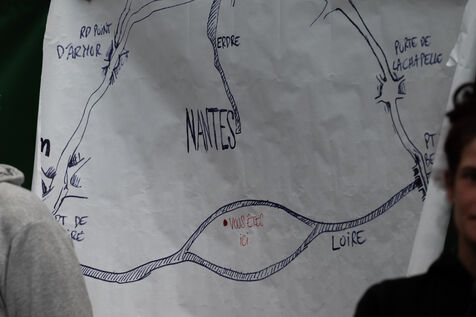 RD POINT
D'ARMOR
ERDRE
PORTE DE
LA CHAPELLE
NANTES
PT DE
VOUS ÊTES
ici
LOIRE